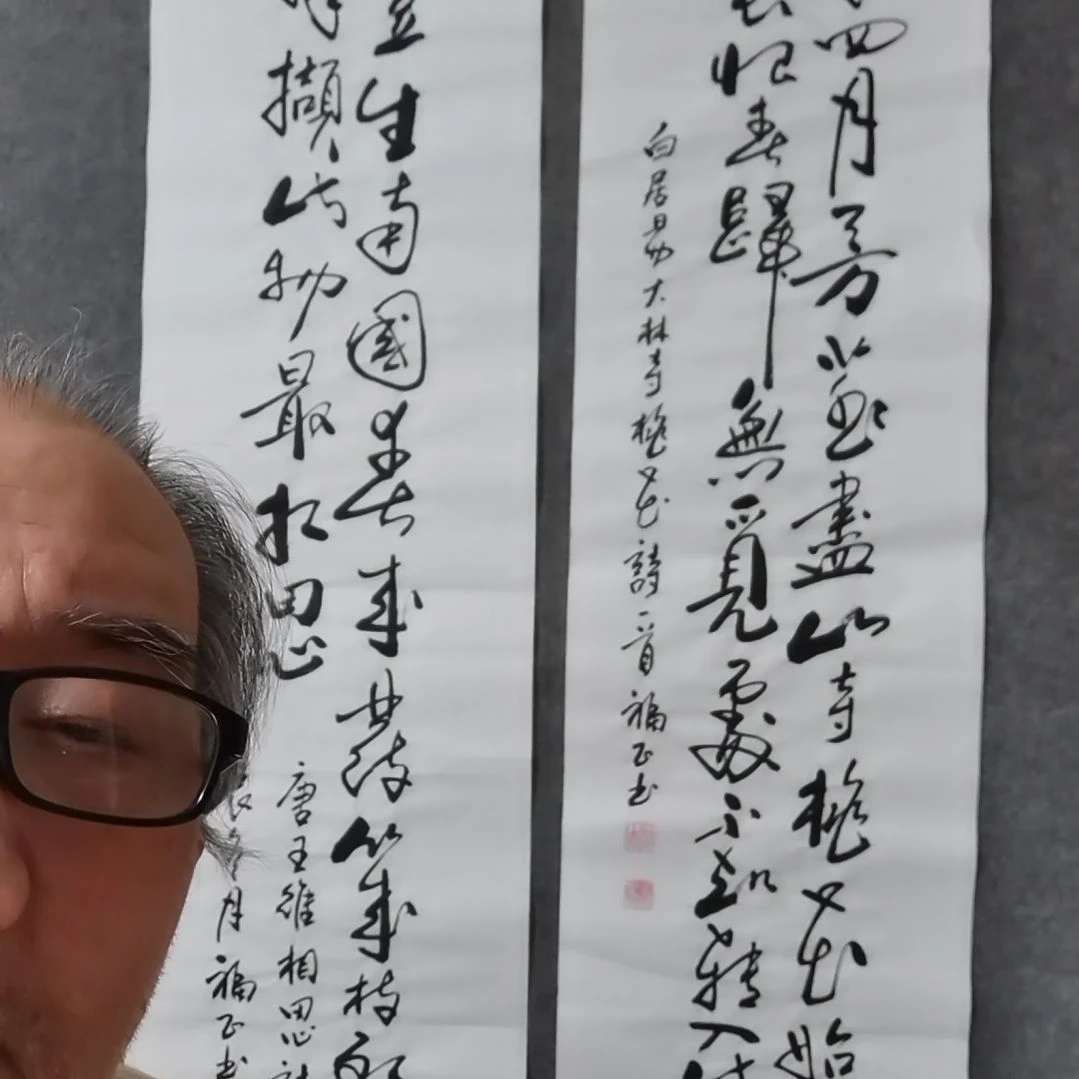 四月芳菲盡山寺桃花始
長恨春歸無覓處不知轉入此
白居易大林寺桃花詩一首福正书
豆生南國春來發幾枝願
擷此物最相思
唐王維相思詩
月福正书